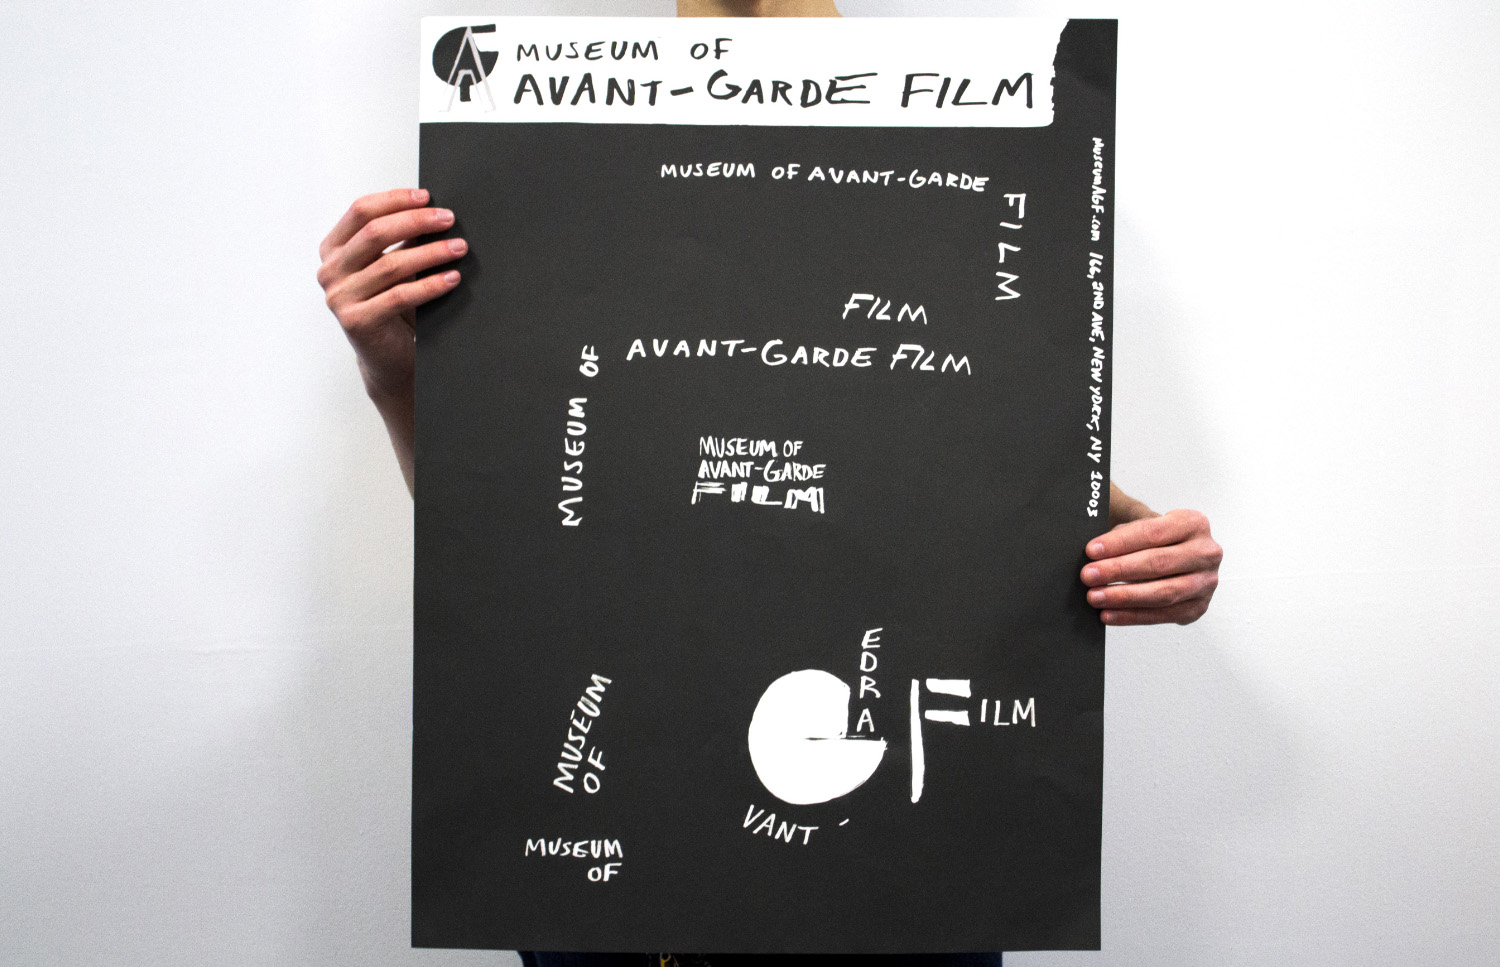 MUSEUM OF
AVANT-GARDE FILM
MUSEUM OF AVANT-GARDE
FILM
MuseumAGF.com 166, 2ND AVE, NEW YORK, NY 10003
FILM
AVANT-GARDE FILM
MUSEUM OF
MUSEUM OF
AVANT-GARDE
FILM
MUSEUM
OF
E
D
R
A
G
FILM
VANT -
MUSEUM
OF